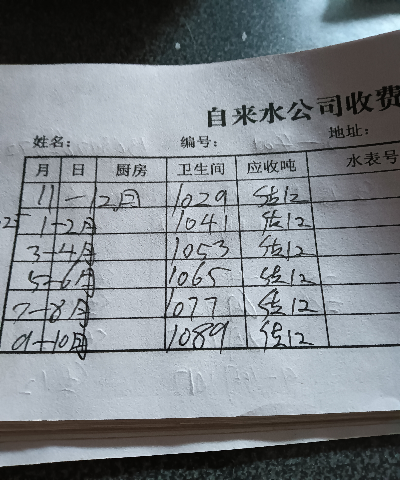 自来水公司收费
姓名: 编号: 地址:
月 日 厨房 卫生间 应收吨 水表号
11-12月 1029 估12
1-2月 1041 估12
3-4月 1053 估12
5-6月 1065 估12
7-8月 1077 估12
9-10月 1089 估12